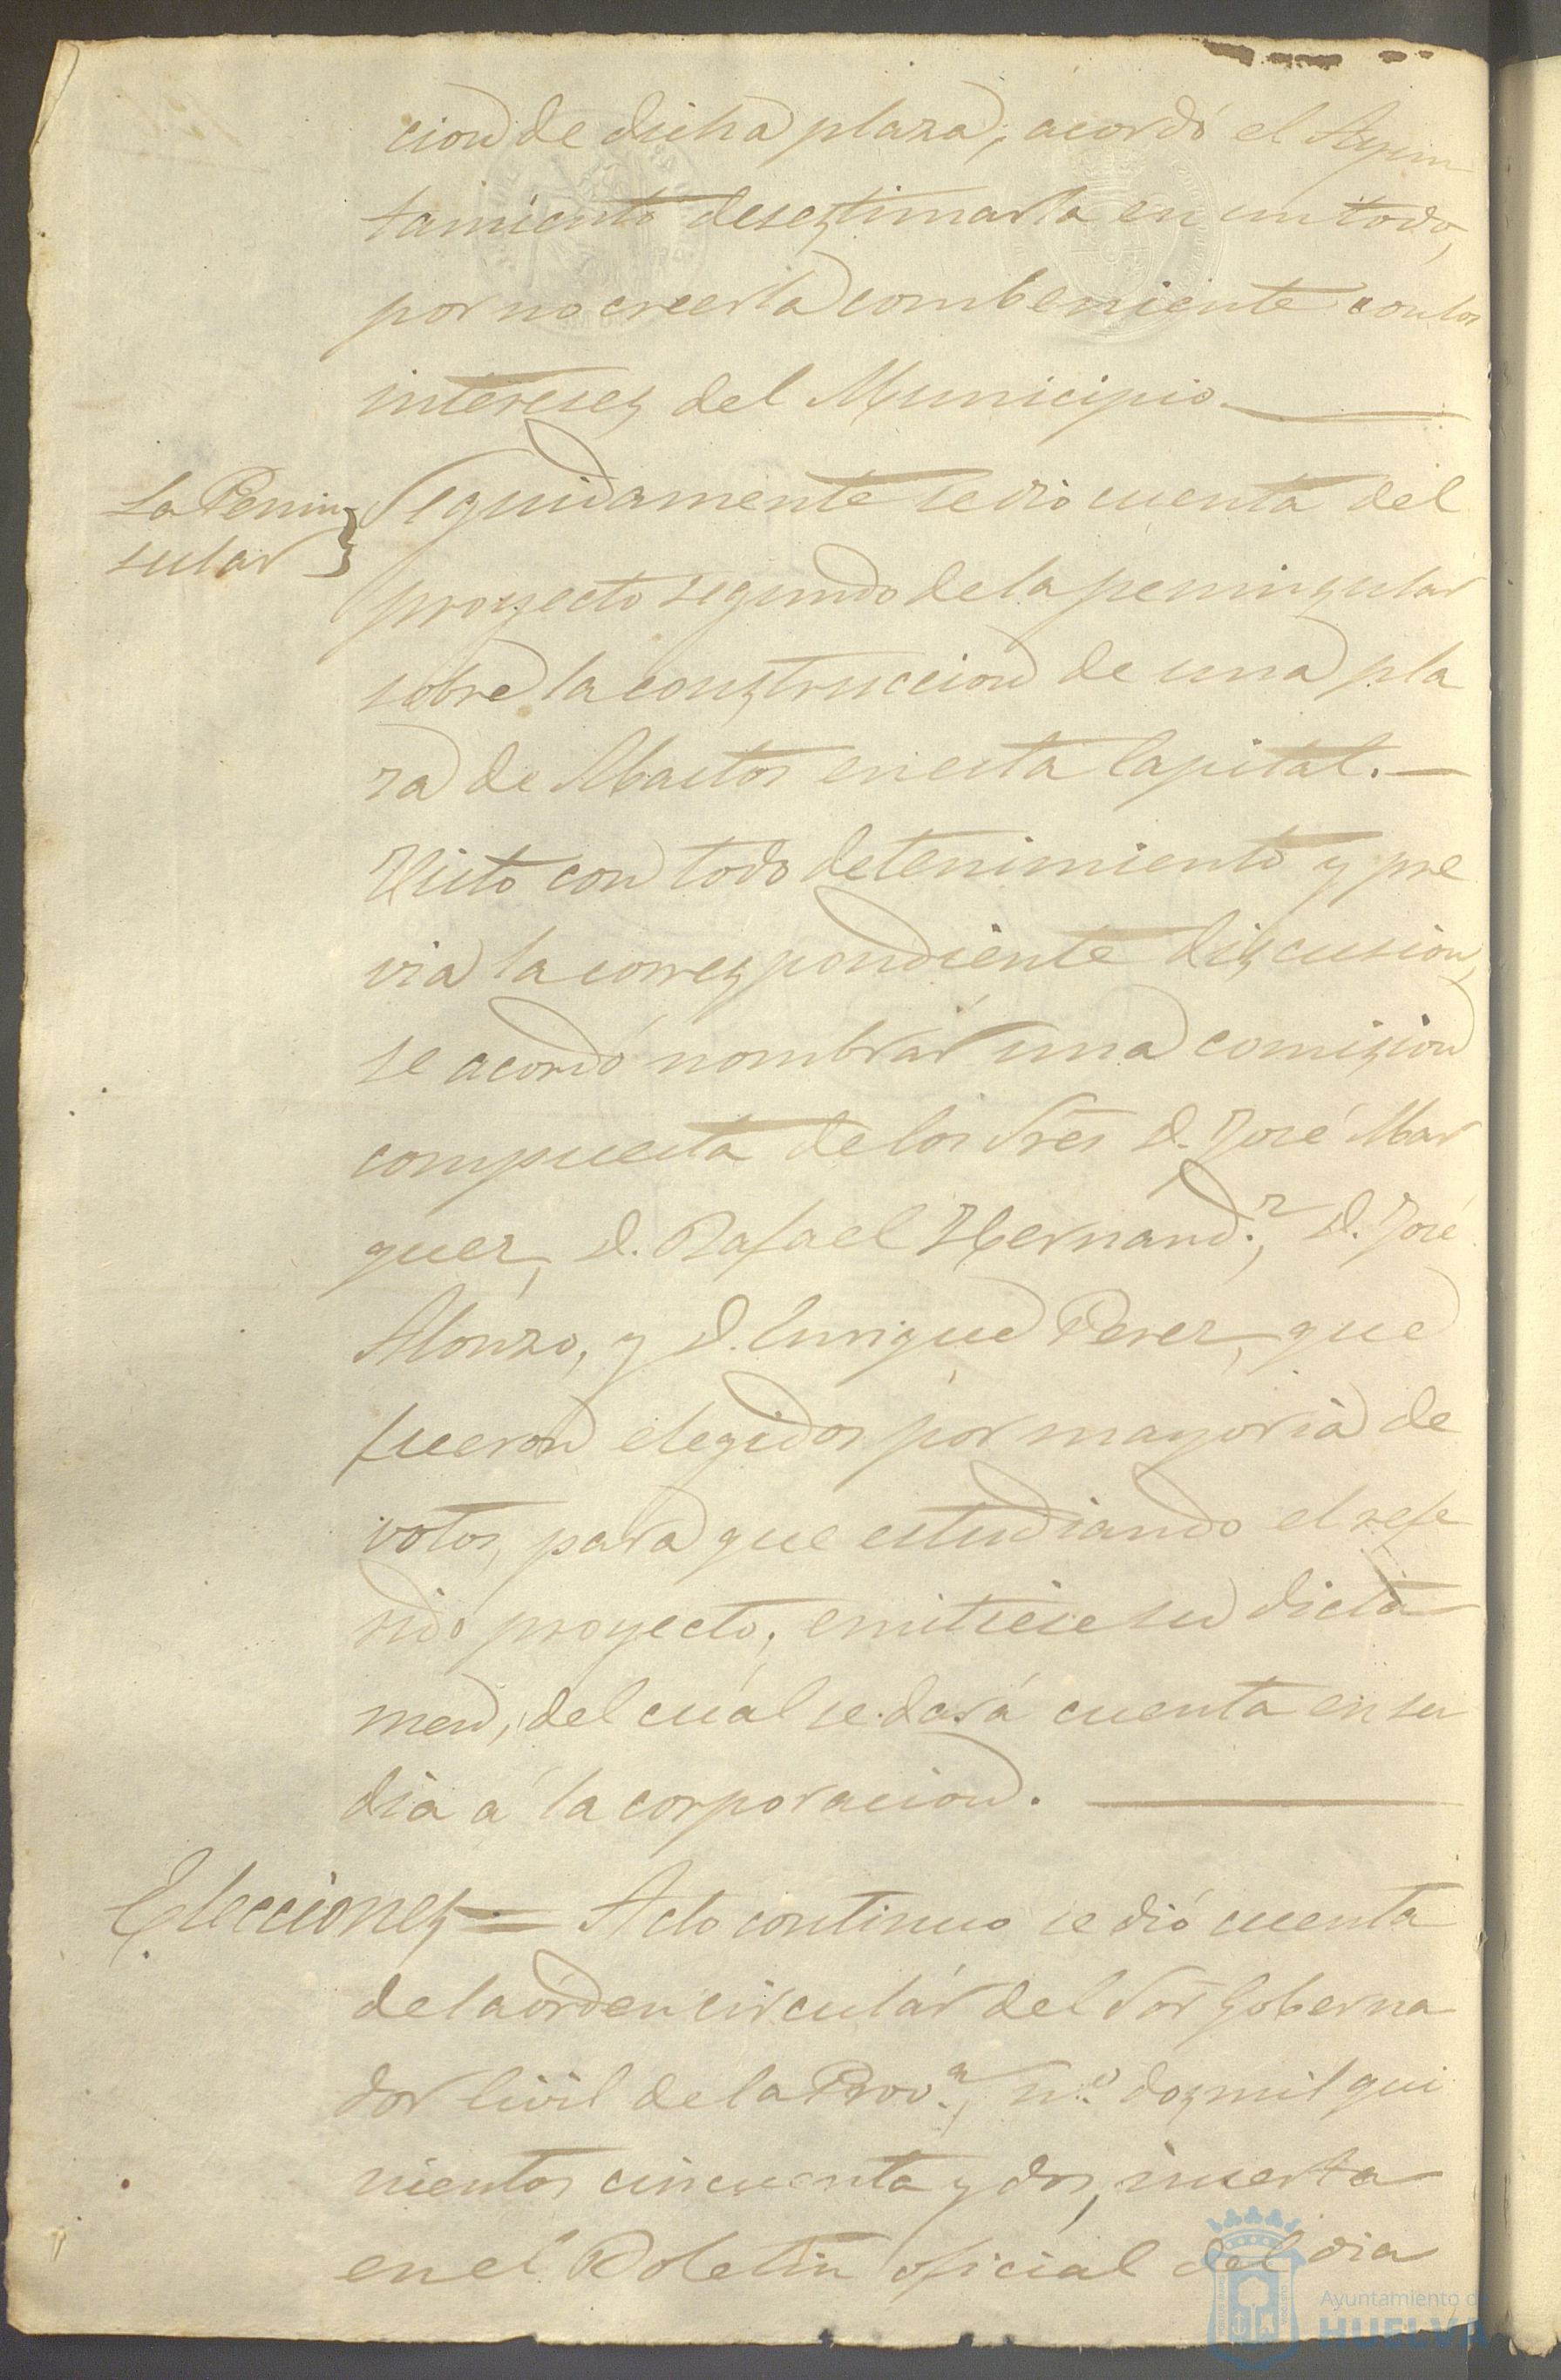 cion de dicha plaza, acordó el Ayun
tamiento desestimarla en un todo,
por no creerla combeniente con los
intereses del Municipio.
La Penin-
sular
Seguidamente se dió cuenta del
proyecto segundo de la peninsular
sobre la construccion de una pla
za de Abastos en esta Capital.
Visto con todo detenimiento y pre
via la correspondiente discusion,
se acordó nombrar una comision
compuesta de los Sres D. José Mar
quez, D. Rafael Hernand.z, D. José
Alonzo, y D. Enrique Perez, que
fueron elegidos por mayoria de
votos, para que estudiando el refe
rido proyecto, emitiese su dicta
men, del cual se dará cuenta en su
dia á la corporacion.
Elecciones = Acto continuo se dió cuenta
de la órden circular del Sor Goberna
dor Civil de la Prov.a, n.o dos mil qui
nientos cincuenta y dos, inserta
en el Boletin oficial del dia
Ayuntamiento de
HUELVA